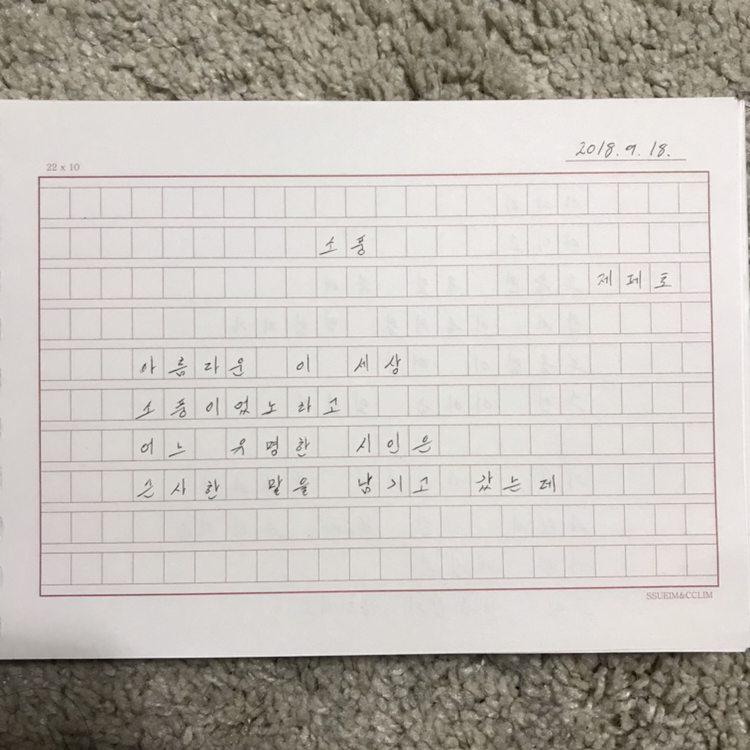 2018. 9. 18.
22 x 10
소풍
제페토
아름다운 이 세상
소풍이었노라고
어느 유명한 시인은
근사한 말을 남기고 갔는데
SSUEIM&CCLIM